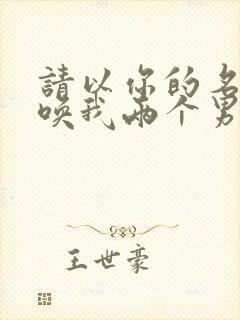 請以你的名
喚我兩个男
王世豪